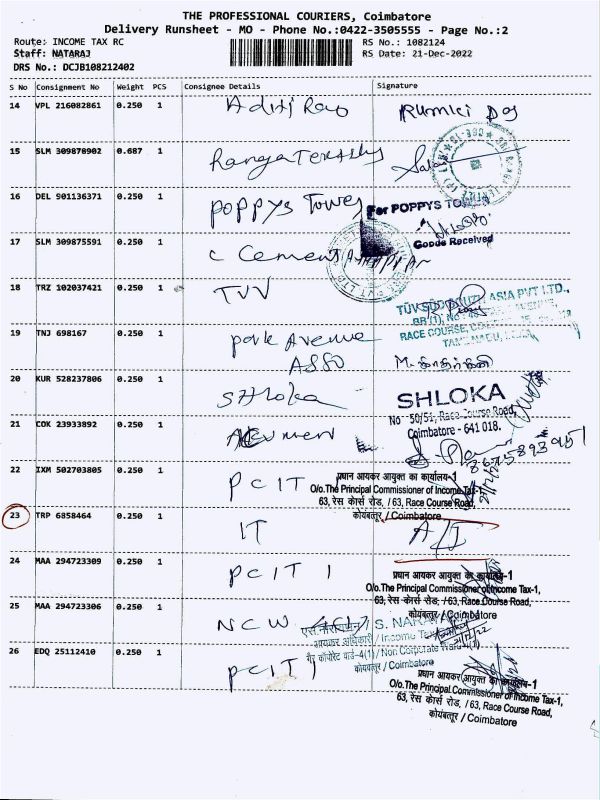 THE PROFESSIONAL COURIERS, Coimbatore
Delivery Runsheet - MO - Phone No.:0422-3505555 - Page No.:2
Route: INCOME TAX RC RS No.: 1082124
Staff: NATARAJ RS Date: 21-Dec-2022
DRS No.: DCJB108212402
S No Consignment No Weight PCS Consignee Details Signature
14 VPL 216082861 0.250 1 Aditi Rao Rumki Das
15 SLM 309878902 0.687 1
16 DEL 901136371 0.250 1 POPPYS Tower For POPPYS
Goods Received
17 SLM 309875591 0.250 1 C Cement
18 TRZ 102037421 0.250 1 TUV
TÜV SÜD SOUTH ASIA PVT LTD.,
RACE COURSE,
19 TNJ 698167 0.250 1 park Avenue
ASSO
20 KUR 528237806 0.250 1 SHloka SHLOKA
No 50/51, Race Course Road,
Coimbatore - 641 018.
21 COK 23933892 0.250 1
22 IXM 502703805 0.250 1 PCIT 1
प्रधान आयकर आयुक्त का कार्यालय-1
O/o.The Principal Commissioner of Income Tax-1,
63, रेस कोर्स रोड, / 63, Race Course Road,
कोयंबत्तूर / Coimbatore
23 TRP 6858464 0.250 1 IT
24 MAA 294723309 0.250 1 PCIT 1
प्रधान आयकर आयुक्त का कार्यालय-1
O/o.The Principal Commissioner of Income Tax-1,
63, रेस कोर्स रोड, / 63, Race Course Road,
कोयंबत्तूर / Coimbatore
25 MAA 294723306 0.250 1 NCW
आयकर अधिकारी / Income Tax
गैर कॉर्पोरेट वार्ड-4(1) / Non Corporate Ward
कोयंबत्तूर / Coimbatore
26 EDQ 25112410 0.250 1 PCIT 1
प्रधान आयकर आयुक्त का कार्यालय-1
O/o.The Principal Commissioner of Income Tax-1,
63, रेस कोर्स रोड, / 63, Race Course Road,
कोयंबत्तूर / Coimbatore